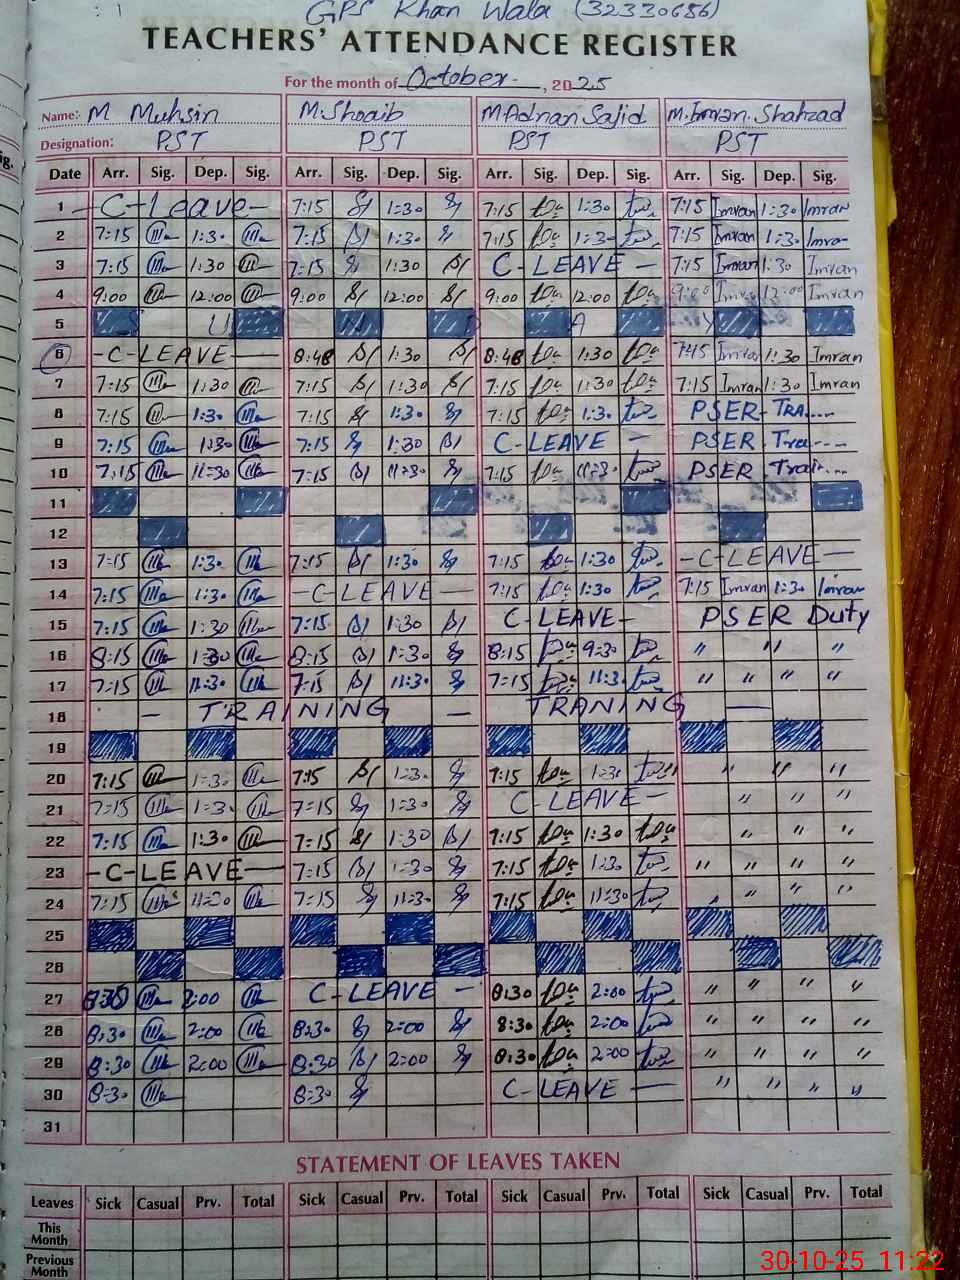 GPS Khan Wala (32330656)
TEACHERS' ATTENDANCE REGISTER
For the month of October , 2025
Name: M Muhsin M. Shoaib M Adnan Sajid M. Imran Shahzad
Designation: PST PST PST PST
ig. Date Arr. Sig. Dep. Sig. Arr. Sig. Dep. Sig. Arr. Sig. Dep. Sig. Arr. Sig. Dep. Sig.
1 C-Leave 7:15 1:30 7:15 1:30 7:15 Imran 1:30 Imran
2 7:15 1:30 7:15 1:30 7:15 1:3- 7:15 Imran 1:3. Imran
3 7:15 1:30 7:15 1:30 C-LEAVE - 7:15 Imran 1:30 Imran
4 9:00 12:00 9:00 12:00 9:00 12:00 9:00 Imran 12:00 Imran
5 S U N D A Y
6 -C-LEAVE- 8:48 1:30 8:48 1:30 7:15 Imran 1:30 Imran
7 7:15 1:30 7:15 1:30 7:15 1:30 7:15 Imran 1:30 Imran
8 7:15 1:30 7:15 1:30 7:15 1:30 PSER-TRA....
9 7:15 1:30 7:15 1:30 C-LEAVE - PSER Tra---
10 7:15 11:30 7:15 11:30 7:15 11:30 PSER Trai...
11
12
13 7:15 1:30 7:15 1:30 7:15 1:30 -C-LEAVE-
14 7:15 1:30 -C-LEAVE- 7:15 1:30 7:15 Imran 1:30 Imran
15 7:15 1:30 7:15 1:30 C-LEAVE- PSER Duty
16 8:15 1:30 8:15 1:30 8:15 9:30 " " "
17 7:15 11:30 7:15 11:30 7:15 11:30 " " " "
18 - TRAINING - TRANING -
19
20 7:15 1:30 7:15 1:30 7:15 1:30 " " " "
21 7:15 1:30 7:15 1:30 C-LEAVE- " " "
22 7:15 1:30 7:15 1:30 7:15 1:30 " " "
23 -C-LEAVE- 7:15 1:30 7:15 1:30 " " " "
24 7:15 11:30 7:15 11:30 7:15 11:30 " " "
25
26
27 8:30 2:00 C-LEAVE - 8:30 2:00 " " " "
28 8:30 2:00 8:30 2:00 8:30 2:00 " " " "
29 8:30 2:00 8:30 2:00 8:30 2:00 " " " "
30 8:30 8:30 C-LEAVE - " " " "
31
STATEMENT OF LEAVES TAKEN
Leaves Sick Casual Prv. Total Sick Casual Prv. Total Sick Casual Prv. Total Sick Casual Prv. Total
This Month
Previous Month
30-10-25 11:22